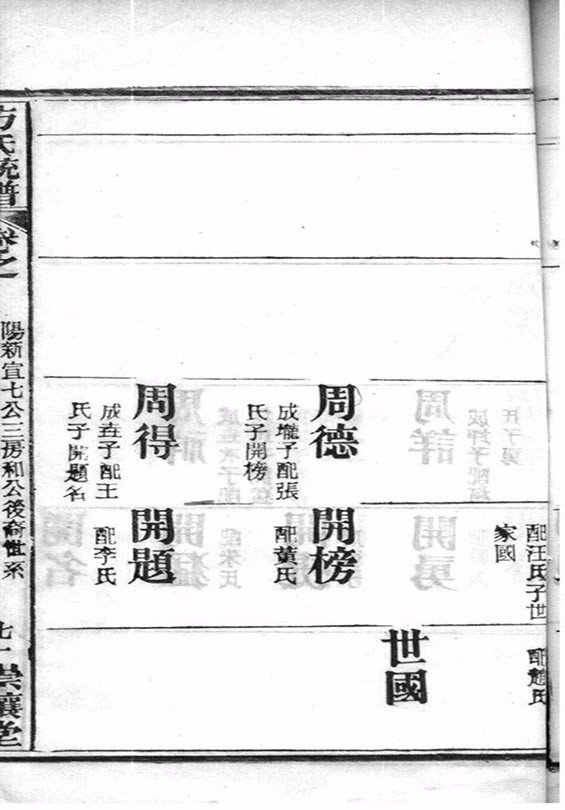 配汪氏子世
家國
配趙氏
世國
周德
成壠子配張
氏子開榜
開榜
配黃氏
周得
成垚子配王
氏子開題名
開題
配李氏
方氏統譜
卷之一
陽新宜七公三房和公後裔世系
崇讓堂